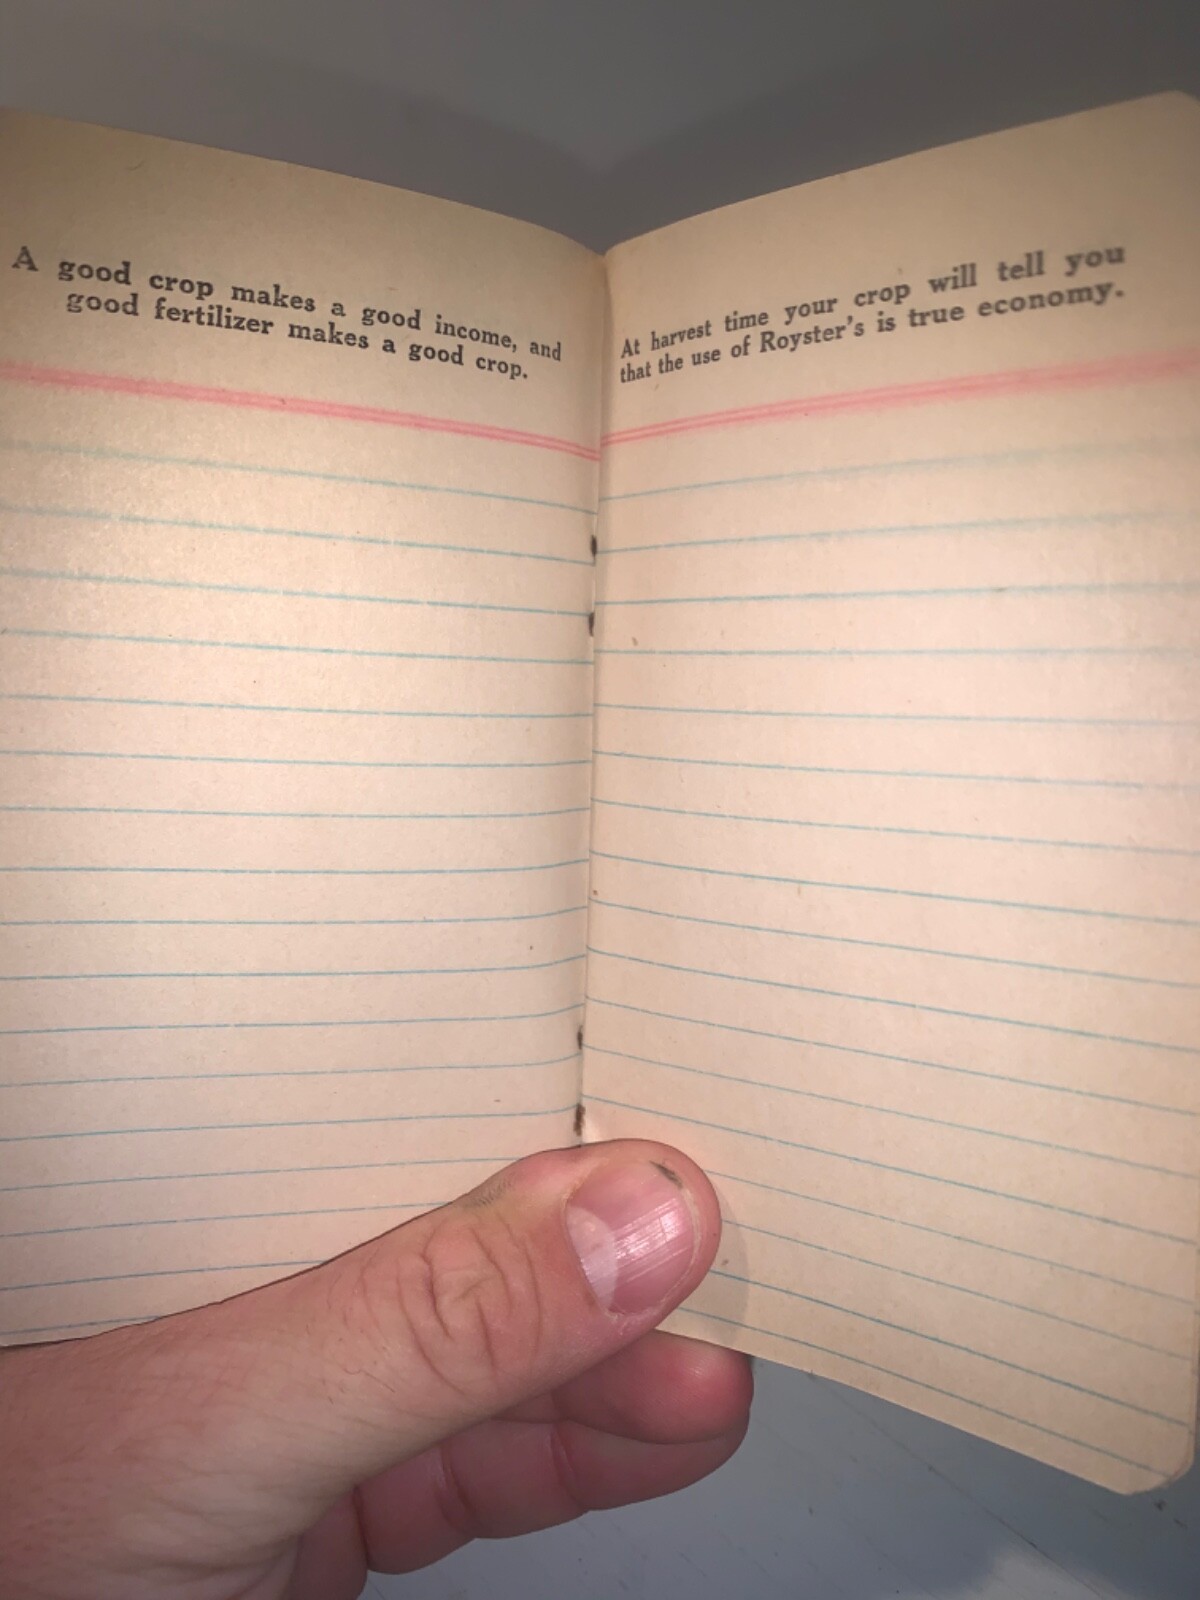 A good crop makes a good income, and
good fertilizer makes a good crop.
At harvest time your crop will tell you
that the use of Royster's is true economy.